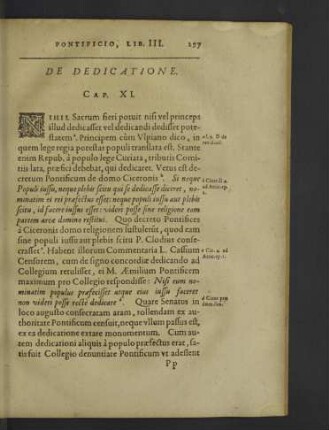 PONTIFICIO, LIB. III. 297
DE DEDICATIONE.
CAP. XI.
NIHIL Sacrum fieri potuit nisi vel princeps
illud dedicasset vel dedicandi dedisset pote-
statem. Principem cùm Vlpiano dico, in
quem lege regia potestas populi translata est. Stante
enim Repub. à populo lege Curiata, tributis Comi-
tiis lata, præfici debebat, qui dedicaret. Vetus est de-
cretum Pontificum de domo Ciceronis. Si neque
Populi iussu, neque plebis scitu qui se dedicasse diceret, no-
minatim ei rei præfectus esset: neque populi iussu aut plebis
scitu, id facere iussus esset: videri posse sine religione eam
partem areæ domino restitui. Quo decreto Pontifices
à Ciceronis domo religionem sustulerūt, quod eam
sine populi iussu aut plebis scitu P. Clodius conse-
crasset. Habent illorum Commentaria L. Cassium
Censorem, cum de signo concordiæ dedicando ad
Collegium retulisset, ei M. Æmilium Pontificem
maximum pro Collegio respondisse: Nisi eum no-
minatim populus præfecisset atque eius iussu faceret
non videri posse recte dedicare. Quare Senatus in
loco augusto consecratam aram, tollendam ex au-
thoritate Pontificum censuit, neque vllum passus est,
ex ea dedicatione extare monumentum. Cum au-
tem dedicationi aliquis à populo præfectus erat, sa-
tis fuit Collegio denuntiare Pontificum vt adessent
Pp